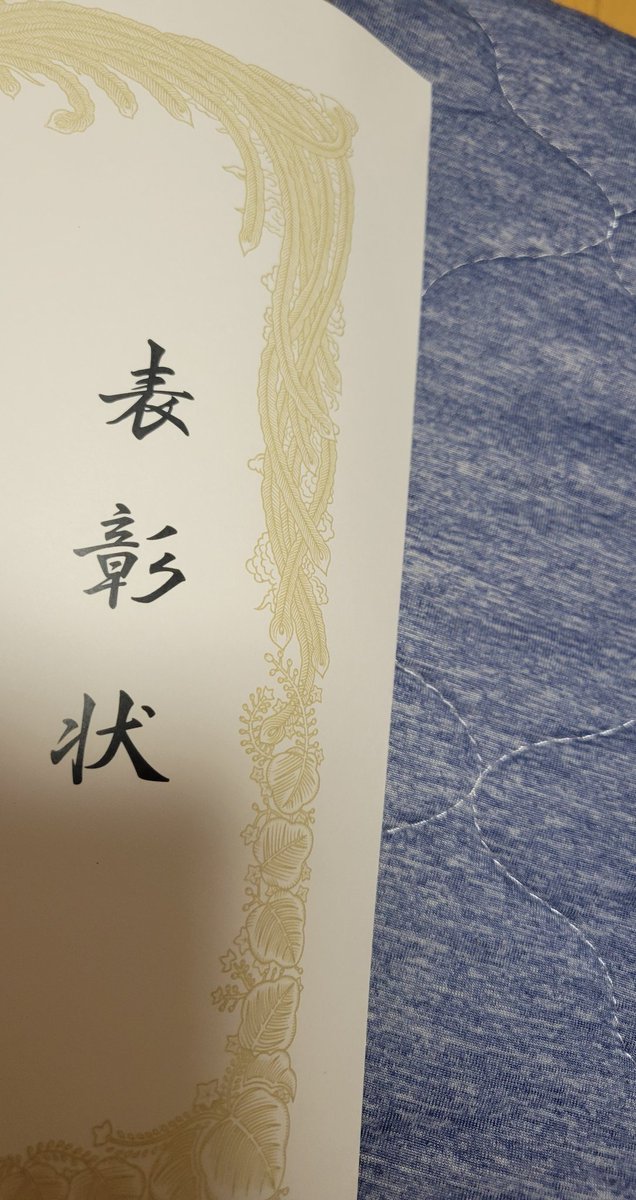 表彰状